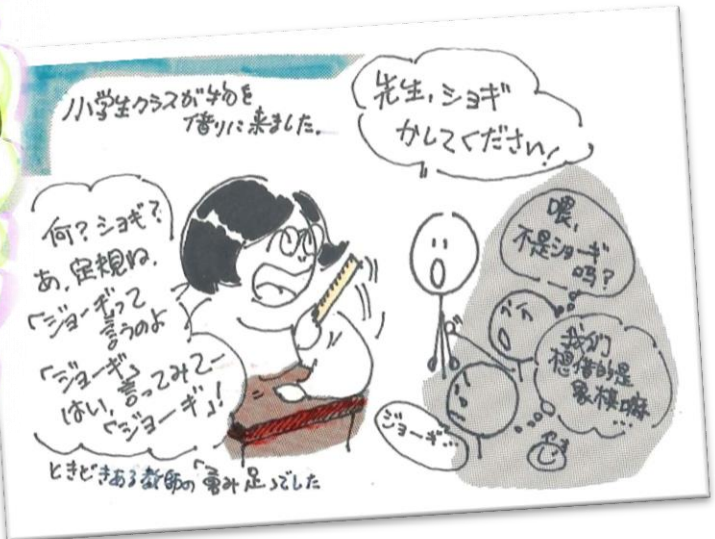 小学生クラスが物を
借りに来ました。
先生,ショギ
かしてください!
何?ショギ?
あ,定規ね.
「ジョーギ」って
言うのよ
「ジョーギ」
はい,言ってみてー
「ジョーギ」!
喂,
不是ショーギ
吗?
我们
想借的是
象棋嘛
...
ジョーギ...
ときどきある教師の「勇み足」でした